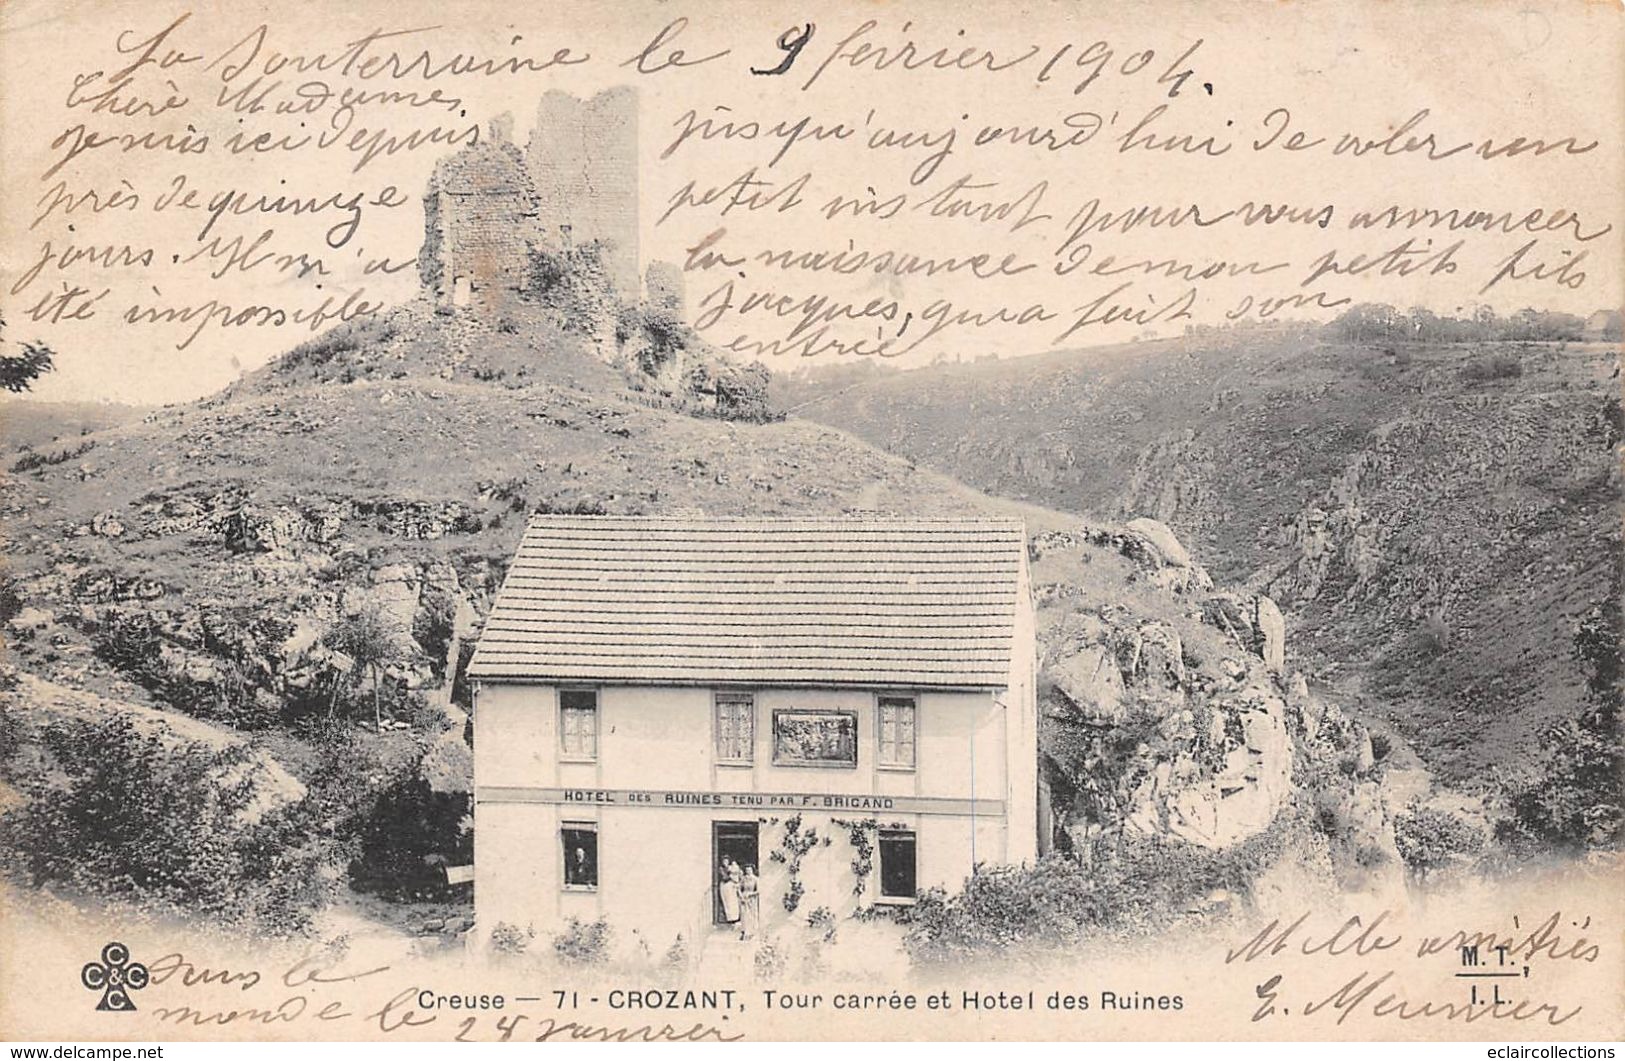 La Souterraine le 9 février 1904.
Chère Madame,
je suis ici depuis
près de quinze
jours. Il m'a
été impossible
jusqu'aujourd'hui de voler un
petit instant pour vous annoncer
la naissance de mon petit fils
Jacques, qui a fait son
entrée
HOTEL DES RUINES TENU PAR F. BRIGAND
dans le
monde le 24 janvier
Mille amitiés
E. Meunier
C C & C C
Creuse — 71 - CROZANT, Tour carrée et Hotel des Ruines
M. T.
I. L.
eclaircollections